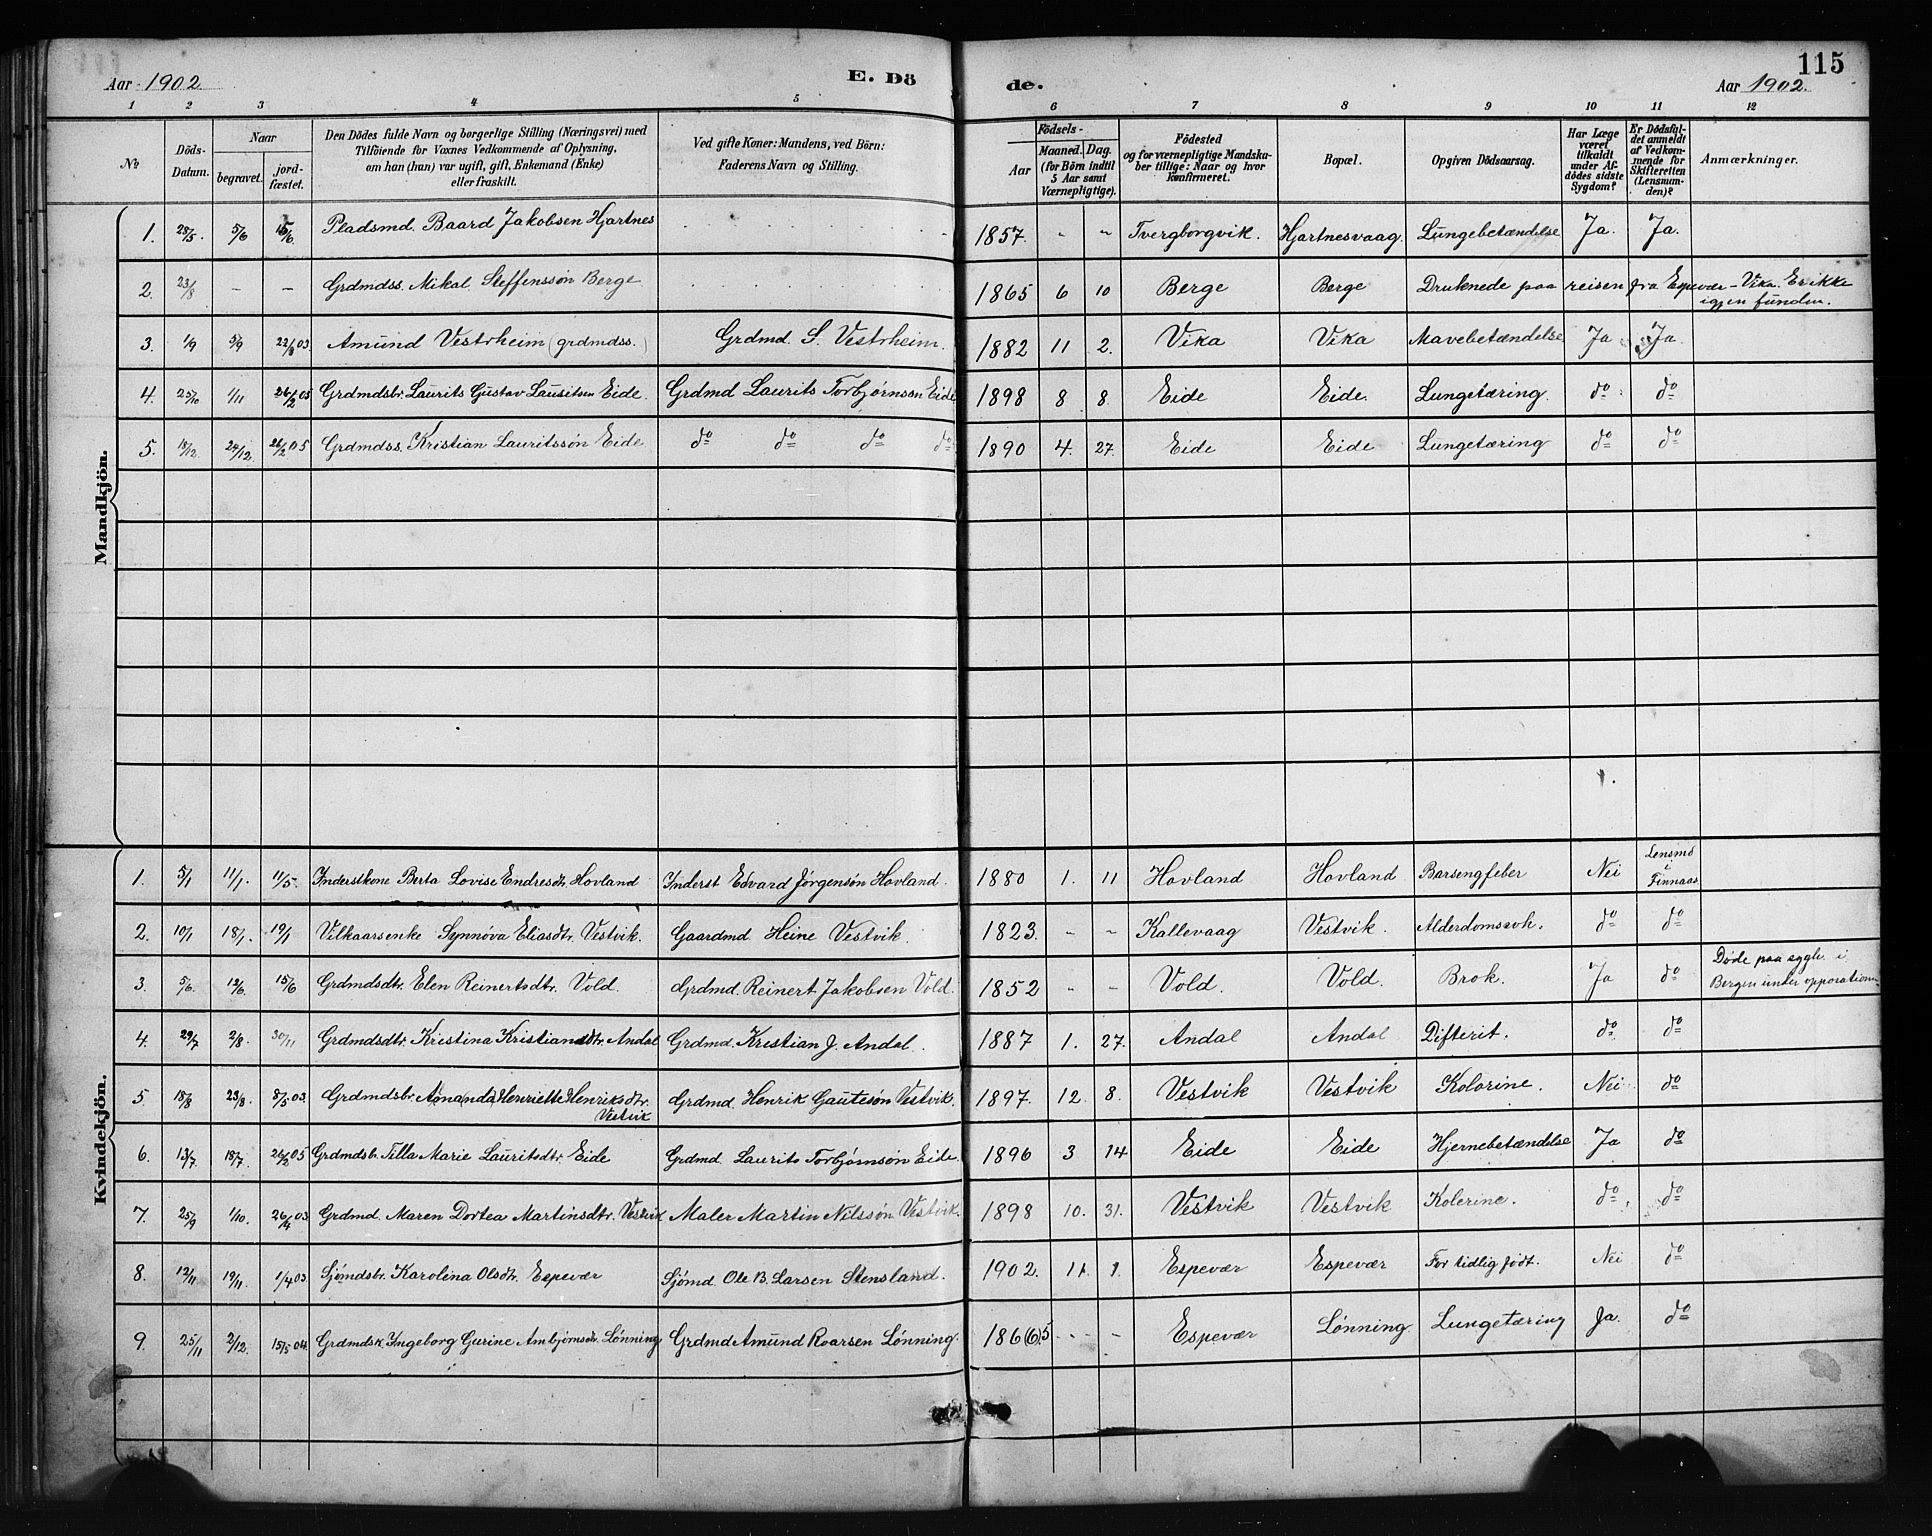 115
Aar 1902 E. Dö de. Aar 1902.
1 2 3 4 5 6 7 8 9 10 11 12
No
Döds-Datum.
Naar
begravet.
jord-fæstet.
Den Dödes fulde Navn og borgerlige Stilling (Næringsvei) med
Tilföiende for Voxnes Vedkommende af Oplysning,
om han (hun) var ugift, gift, Enkemand (Enke)
eller fraskilt.
Ved gifte Koner: Mandens, ved Börn:
Faderens Navn og Stilling.
Födsels-
Aar
Maaned. Dag.
(for Börn indtil
5 Aar samt
Værnepligtige).
Födested
og for værnepligtige Mandska-
ber tillige: Naar og hvor
konfirmeret.
Bopæl.
Opgiven Dödsaarsag.
Har Læge
været
tilkaldt
under Af-
dödes sidste
Sygdom?
Er Dödsfal-
det anmeldt
af Vedkom-
mende for
Skifteretten
(Lensman-
den)?
Anmærkninger.
Mandkjön.
1. 28/5. 5/6 15/6. Pladsmd. Baard Jakobsen Hjartnes 1857. - - Tvergborgvik. Hjartnesvaag. Lungebetændelse Ja. Ja.
2. 23/8 - - Grdmdss. Mikal Steffenssøn Berge 1865 6 10 Berge Berge Druknede paa reisen fra Espevær - Vika. Er ikke
igjen funden.
3. 1/9 5/9 22/8 03 Amund Vestrheim (grdmdss.) Grdmd. S. Vestrheim. 1882 11 2. Vika Vika Mavebetændelse Ja Ja
4. 25/10 1/11 26/2 05 Grdmdsbr. Laurits Gustav Lauritsen Eide. Grdmd Laurits Torbjørnsøn Eide 1898 8 8. Eide Eide. Lungetæring. do do
5. 18/12. 24/12. 26/2 05 Grdmdss. Kristian Lauritssøn Eide do do do do 1890 4. 27. Eide Eide Lungetæring do do
Kvindekjön.
1. 5/1 11/1. 11/5. Inderstkone Berta Lovise Endresdtr. Hovland Inderst Edvard Jørgensøn Hovland. 1880 1. 11 Hovland Hovland Barsengfeber Nei Lensmd
i
Finnaas
2. 10/1 18/1. 19/1 Vilkaarsenke Synnøva Eliasdtr. Vestvik. Gaardmd Heine Vestvik. 1823. - - Kallevaag Vestvik. Alderdomssvk. do do
3. 5/6. 12/6. 15/6 Grdmdsdtr. Elen Reinertsdtr. Vold. Grdmd. Reinert Jakobsen Vold. 1852 - - Vold. Vold. Brok. Ja do Døde paa sygh. i
Bergen under opporation
4. 29/7 2/8. 30/11 Grdmdsdtr. Kristina Kristiansdtr. Andal Grdmd. Kristian J. Andal. 1887 1. 27. Andal Andal Difterit. do do
5. 18/8 23/8. 8/5 03. Grdmdsbr. Amanda Henriette Henriksdtr.
Vestvik Grdmd. Henrik Gautesøn Vestvik. 1897. 12. 8. Vestvik Vestvik Kolorine. Nei do
6. 13/7. 18/7. 26/2 05 Grdmdsb. Tilla Marie Lauritsdtr. Eide Grdmd. Laurits Torbjørnsøn Eide. 1896 3 14 Eide Eide Hjernebetændelse Ja do
7. 25/9 1/10. 26/4 03. Grdmd. Maren Dortea Martinsdtr. Vestvik Maler Martin Nilssøn Vestvik. 1898 10. 31. Vestvik Vestvik Kolerine. do do
8. 12/11 19/11. 1/4 03. Sjømdsbr. Karolina Olsdtr. Espevær Sjømd Ole B. Larsen Stensland. 1902. 11 1. Espevær Espevær For tidlig født. Nei do
9. 25/11 2/12. 15/5 04. Grdmdsk. Ingeborg Gurine Ambjørnsdtr. Lønning Grdmd Amund Roarsen Lønning. 186(6)5 - - Espevær Lønning Lungetæring Ja. do